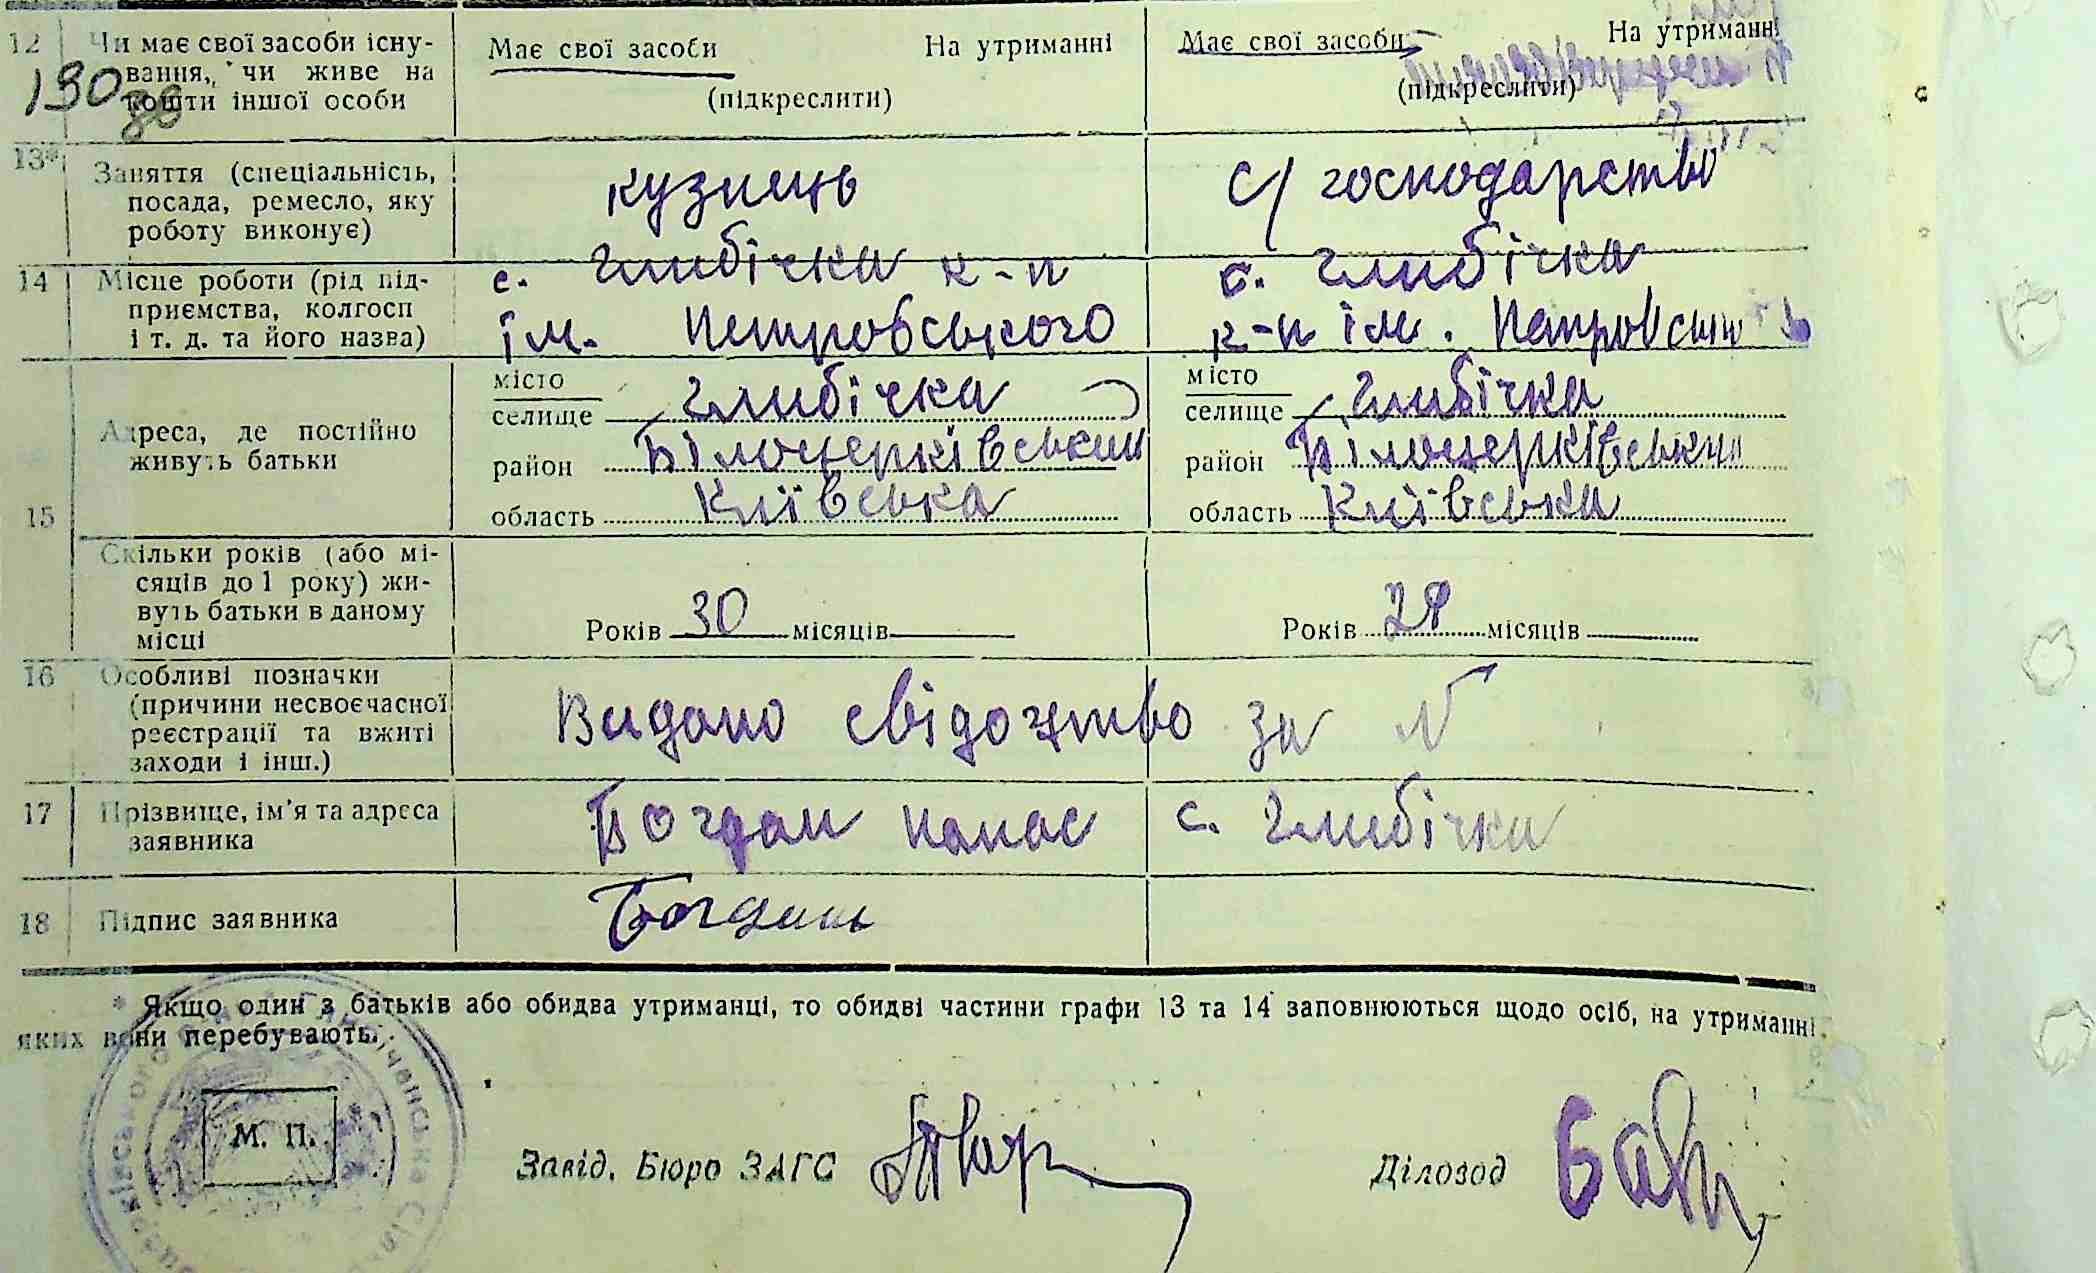 12 Чи має свої засоби існу- Має свої засоби На утриманні Має свої засоби На утриманні
вання, чи живе на
кошти іншої особи (підкреслити) (підкреслити)
130
88
13* Заняття (спеціальність, кузнець с/господарство
посада, ремесло, яку
роботу виконує)
14 Місце роботи (рід під- с. Глибічка к-п с. Глибічка
приємства, колгосп
і т. д. та його назва) ім. Петровського к-п ім. Петровсько
15 Адреса, де постійно живуть батьки
місто
селище Глибічка
район Білоцерківський
область Київська
місто
селище Глибічка
район Білоцерківський
область Київська
Скільки років (або мі-
сяців до 1 року) жи-
вуть батьки в даному
місці Років 30 місяців Років 28 місяців
16 Особливі позначки
(причини несвоєчасної Видано свідоцтво за №
реєстрації та вжиті
заходи і інш.)
17 Прізвище, ім'я та адреса Богдан Панас с. Глибічка
заявника
18 Підпис заявника Богдань
* Якщо один з батьків або обидва утриманці, то обидві частини графи 13 та 14 заповнюються щодо осіб, на утриманні
яких вони перебувають.
М. П.
Завід. Бюро ЗАГС Діловод